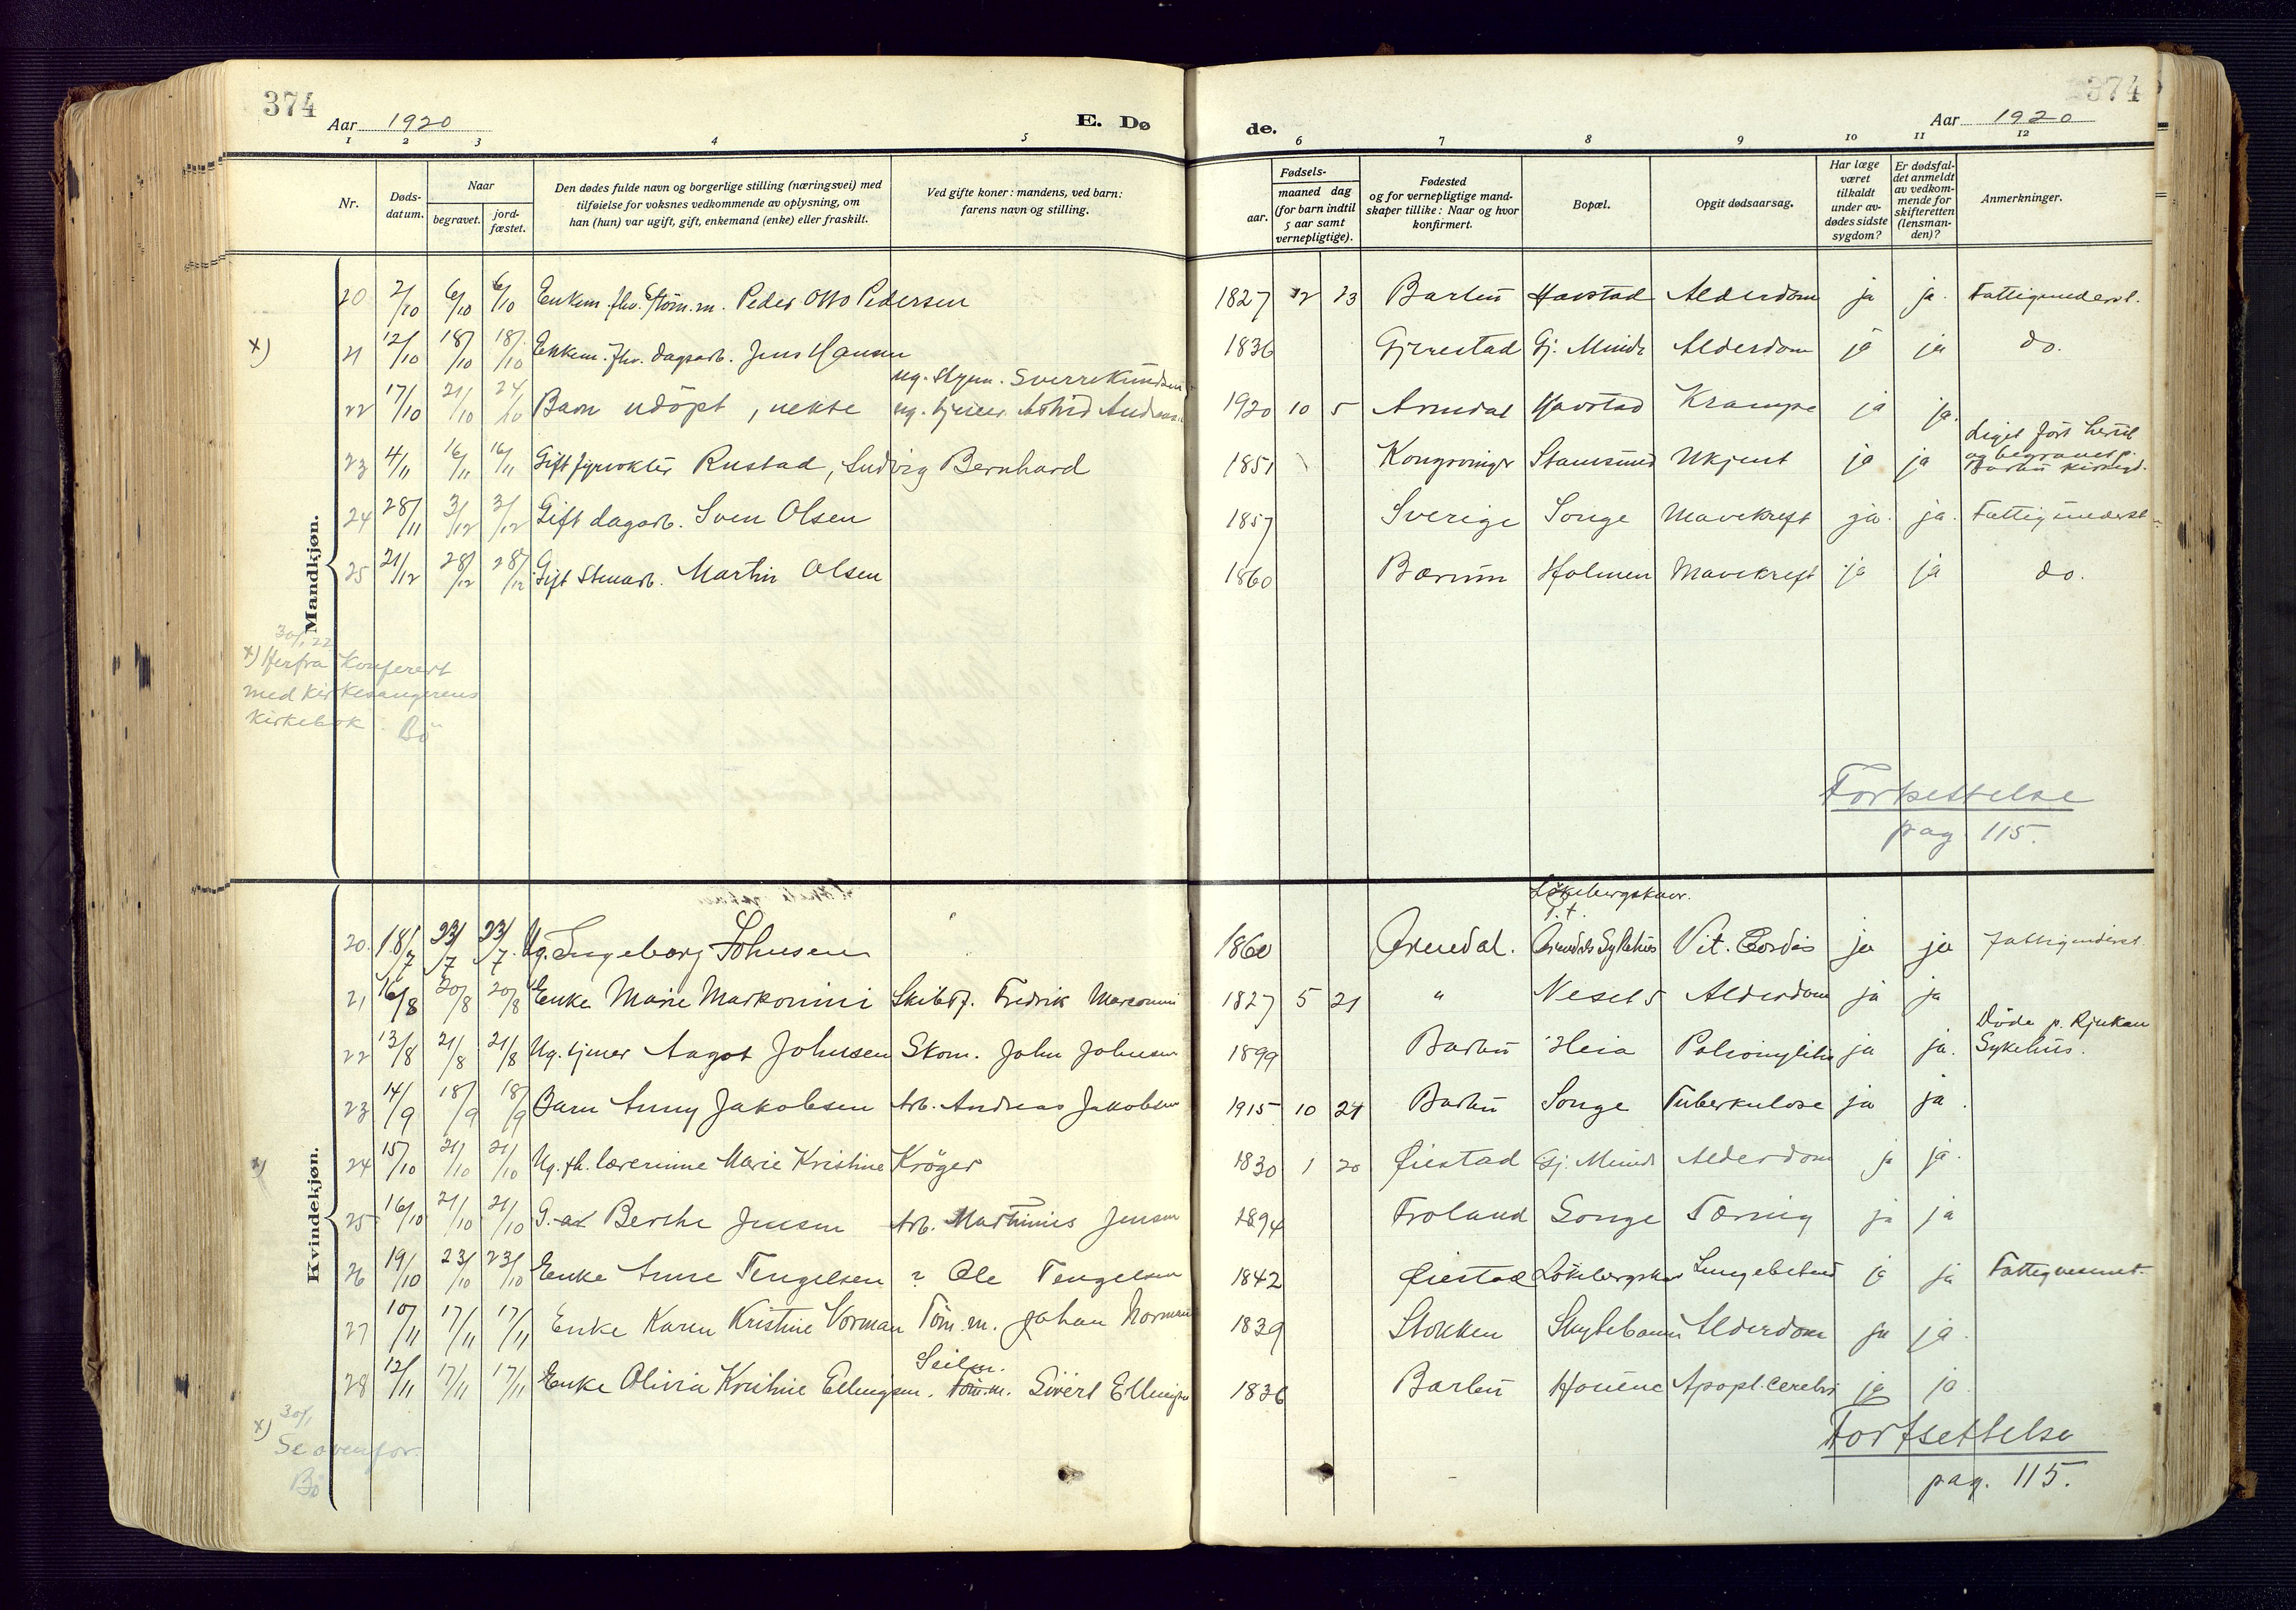 374
374
Aar 1920
E. Dø
de.
Aar 1920
1 2 3 4 5 6 7 8 9 10 11 12
Nr.
Døds-
datum.
Naar
begravet.
jord-
fæstet.
Den dødes fulde navn og borgerlige stilling (næringsvei) med
tilføielse for voksnes vedkommende av oplysning, om
han (hun) var ugift, gift, enkemand (enke) eller fraskilt.
Ved gifte koner: mandens, ved barn:
farens navn og stilling.
Fødsels-
aar.
maaned dag
(for barn indtil
5 aar samt
vernepligtige).
Fødested
og for vernepligtige mand-
skaper tillike: Naar og hvor
konfirmert.
Bopæl.
Opgit dødsaarsag.
Har læge
været
tilkaldt
under av-
dødes sidste
sygdom?
Er dødsfal-
det anmeldt
av vedkom-
mende for
skifteretten
(lensman-
den)?
Anmerkninger.
Mandkjøn.
20 2/10 6/10 6/10 Enkem. fhv. Tøm.m. Peder Otto Pedersen 1827 12 23 Barbu Havstad Alderdom ja ja. Fattigunderst.
x) 21 12/10 18/10 18/10 Enkem. fhv. dagarb. Jens Hansen 1836 Gjerestad Gj. Minde Alderdom ja ja do.
ug. Sverre Knudsen
22 17/10 21/10 24/10 Barn udöpt, uekte ug. tjener Astrid 1920 10 5 Arendal Havstad Krampe ja ja.
Liget fört hertil
og begravet p.
Barbu kirkegd.
23 4/11 16/11 16/11 Gift fyrvokter Rustad, Ludvig Bernhard 1851 Kongsvinger Stamsund Ukjent ja ja
24 28/11 3/12 3/12 Gift dagarb. Sven Olsen 1857 Sverige Songe Mavekreft ja. ja. Fattigunderst.
25 21/12 28/12 28/12 Gift Stenarb. Martin Olsen 1860 Bærum Holmen Mavekreft ja ja do.
30/1 22
x) Herfra konferert
med kirkesangerens
kirkebok. Bö
Fortsettelse
pag. 115.
Kvindekjøn.
Lökebergskar.
P.t.
20. 18/7 23/7 23/7 Ug. Ingeborg Johnsen 1860 Arendal. Arendals Sykehus Vit. Cordis ja ja Fattigunderst.
21 16/8 20/8 20/8 Enke Marie Markomini Skibstj. Fredrik Marcomini 1827 5 21 " Nesel 5 Alderdom ja ja
Döde p. Rjukan
Sykehus.
22 13/8 21/8 21/8 Ug. tjener Aagot Johnsen Skom. John Johnsen 1899 Barbu Heia ja ja.
23 14/9 18/9 18/9 Barn Anny Jakobsen Arb. Andreas Jakobsen 1915 10 24 Barbu Songe Tuberkulose ja ja.
x) 24 15/10 21/10 21/10 Ug. fh. lærerinne Marie Kristine Kröger 1830 1 20 Øiestad Gj. Minde Alderdom ja ja.
25 16/10 21/10 21/10 G. Berthe Jensen Arb. Martinius Jensen 1894 Froland Songe Tæring ja ja
26 19/10 23/10 23/10 Enke Anne Tengelsen ? Ole Tengelsen 1842 Øiestad Lökebergskar Lungebetend ja ja
27 10/11 17/11 17/11 Enke Karen Kristine Norman Töm.m. Johan Norman 1839 Stokken Alderdom ja ja.
Seilm.
28 12/11 17/11 17/11 Enke Olivia Kristine Ellingsen. Töm.m. Sivert Ellingsen 1836 Barbu Apopl. Cerebri ja ja
x) 30/1
Se ovenfor.
Bö
Fortsettelse
pag. 115.